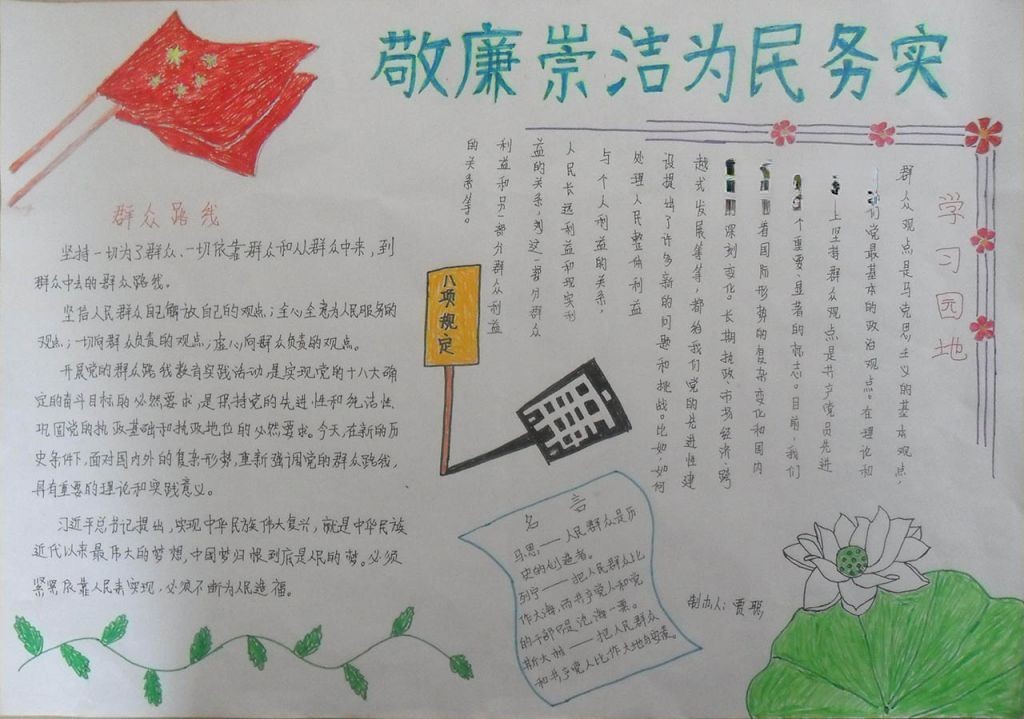 敬廉崇洁为民务实
群众路线
坚持一切为了群众、一切依靠群众和从群众中来,到
群众中去的群众路线。
坚信人民群众自己解放自己的观点;全心全意为人民服务的
观点;一切向群众负责的观点;虚心向群众负责的观点。
开展党的群众路线教育实践活动是实现党的十八大确
定的奋斗目标的必然要求,是保持党的先进性和纯洁性、
巩固党的执政基础和执政地位的必然要求。今天,在新的历
史条件下,面对国内外的复杂形势,重新强调党的群众路线,
具有重要的理论和实践意义。
习近平总书记提出,实现中华民族伟大复兴,就是中华民族
近代以来最伟大的梦想,中国梦归根到底是人民的梦。必须
紧紧依靠人民来实现,必须不断为人民造福。
学习园地
群众观点是马克思主义的基本观点,
们党最基本的政治观点。在理论和
上坚持群众观点是共产党员先进
个重要、显著的标志。目前,我们
着国际形势的复杂变化和国内
深刻变化。长期执政、市场经济、跨
越式发展等等,都给我们党的先进性建
设提出了许多新的问题和挑战。比如,如何
处理人民整体利益
与个人利益的关系,
人民长远利益和现实利
益的关系,列这一部分群众
利益和另一部分群众利益
的关系等。
八项规定
名言
马恩——人民群众是历
史的创造者。
列宁——把人民群众比
作大海,而共产党人和党
的干部只是沧海一粟。
斯大林——把人民群众
和共产党人比作大地与安泰。
制作人:贾聪